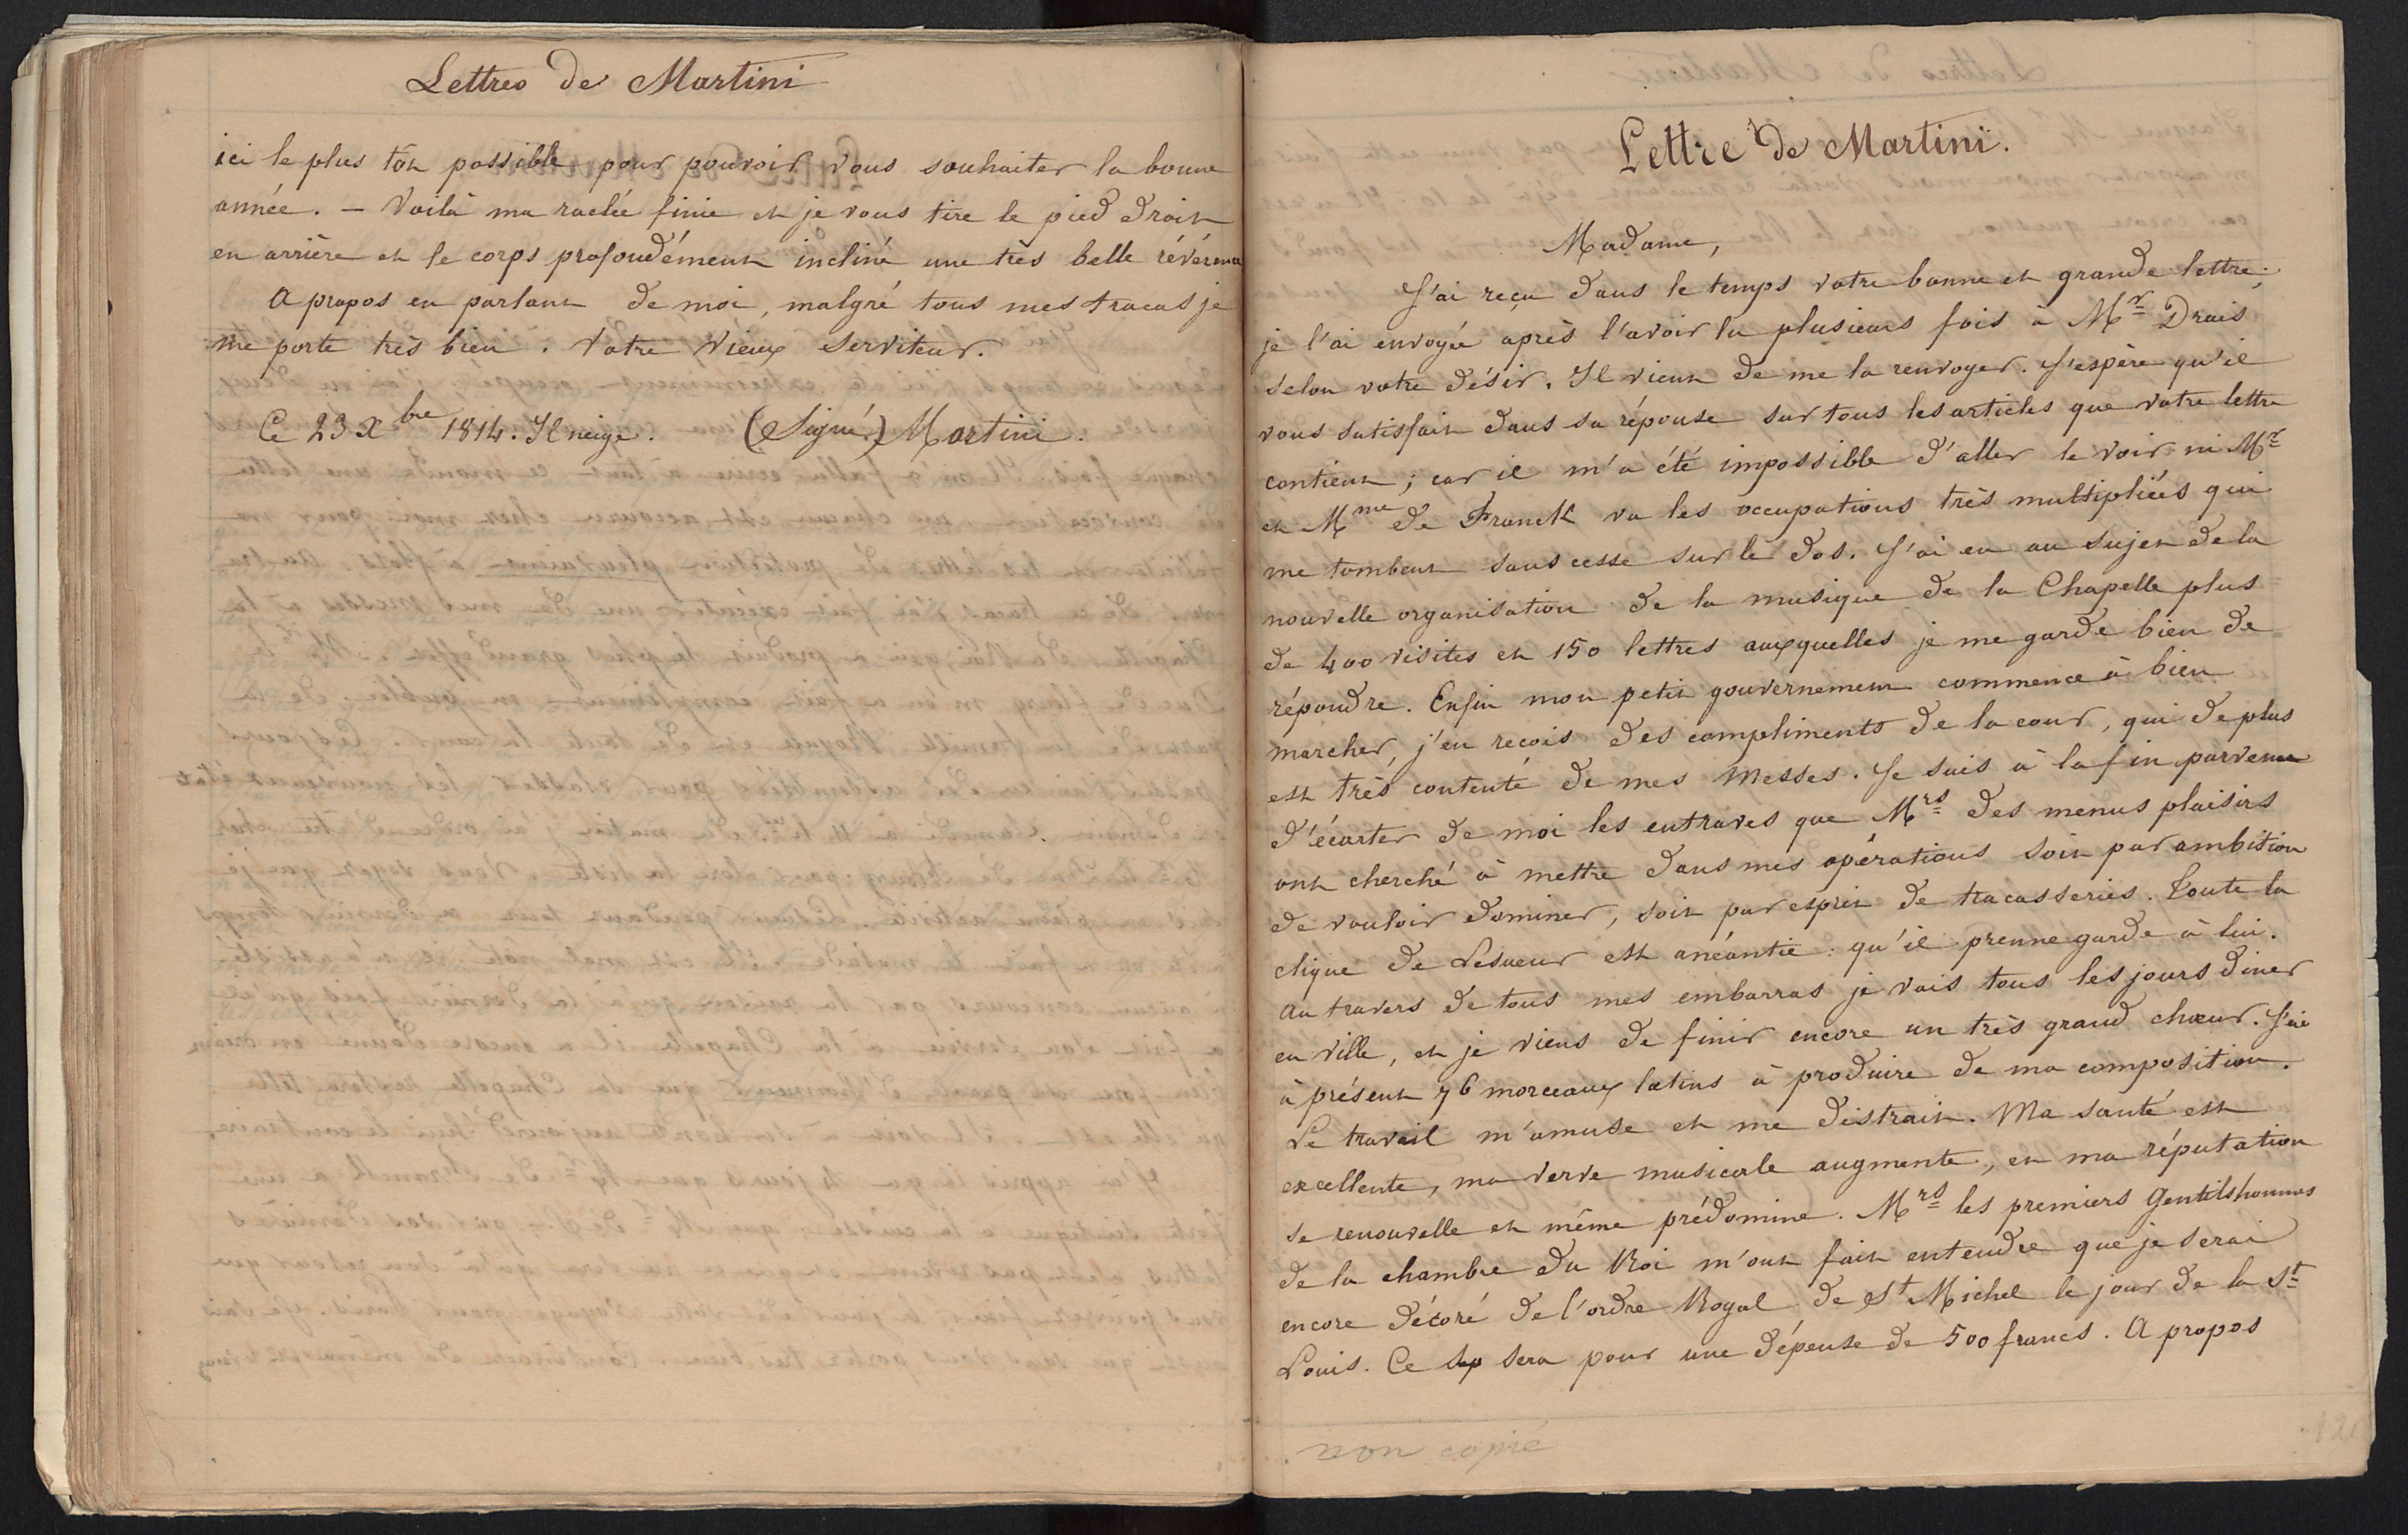 Lettres de Martini
ici le plus tôt possible pour pouvoir vous souhaiter la bonne
année. — Voilà ma raclée finie et je vous tire le pied droit
en arrière et le corps profondément incliné une très belle révérence
A propos en parlant de moi, malgré tous mes tracas je
me porte très bien. Votre vieux serviteur.
Ce 23 Xbre 1814. Il neige. (Signé) Martini.
Lettre de Martini.
Madame,
J'ai reçu dans le temps votre bonne et grande lettre;
je l'ai envoyée après l'avoir lu plusieurs fois à Mr Drais
selon votre désir. Il vient de me la renvoyer. J'espère qu'il
vous satisfait dans sa réponse sur tous les articles que votre lettre
contient; car il m'a été impossible d'aller le voir ni Mr
et Mme de Franck vu les occupations très multipliées qui
me tombent sans cesse sur le dos. J'ai eu au sujet de la
nouvelle organisation de la musique de la Chapelle plus
de 400 visites et 150 lettres auxquelles je me garde bien de
répondre. Enfin mon petit gouvernement commence à bien
marcher, j'en reçois des compliments de la cour, qui de plus
est très contente de mes Messes. Je suis à la fin parvenu
d'écarter de moi les entraves que Mrs des menus plaisirs
ont cherché à mettre dans mes opérations soit par ambition
de vouloir dominer, soit par esprit de tracasseries. Toute la
clique de Lesueur est anéantie: qu'il prenne garde à lui.
Au travers de tous mes embarras je vais tous les jours diner
en ville, et je viens de finir encore un très grand chœur. J'ai
à présent 76 morceaux latins à produire de ma composition.
Le travail m'amuse et me distrait. Ma santé est
excellente, ma verve musicale augmente, et ma réputation
se renouvelle et même prédomine. Mrs les premiers Gentilshommes
de la chambre du Roi m'ont fait entendre que je serai
encore décoré de l'ordre Royal de St Michel le jour de la St
Louis. Ce sera pour une dépense de 500 francs. A propos
non copié